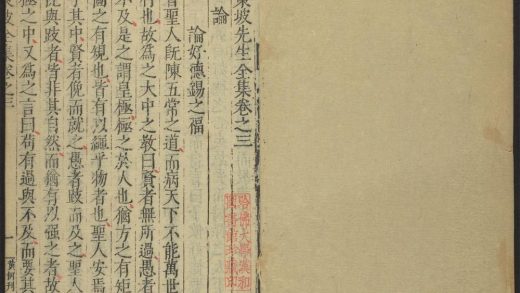 東坡先生全集卷之三
論
論好德錫之福
昔聖人既陳五常之道而病天下不能萬世
行也故為之大中之教曰賢者無所過愚者
不及是之謂皇極極之於人也猶方之有矩
圓之有規也皆有以繩乎物者也聖人安焉
乎其中賢者俛而就之愚者跂而及之聖人
與跂者皆非其自然而猶有以強之者故
極之中又為之言曰苟有過與不及而要其
坡全集卷之三 一
哈佛大學漢和
圖書館珍藏印